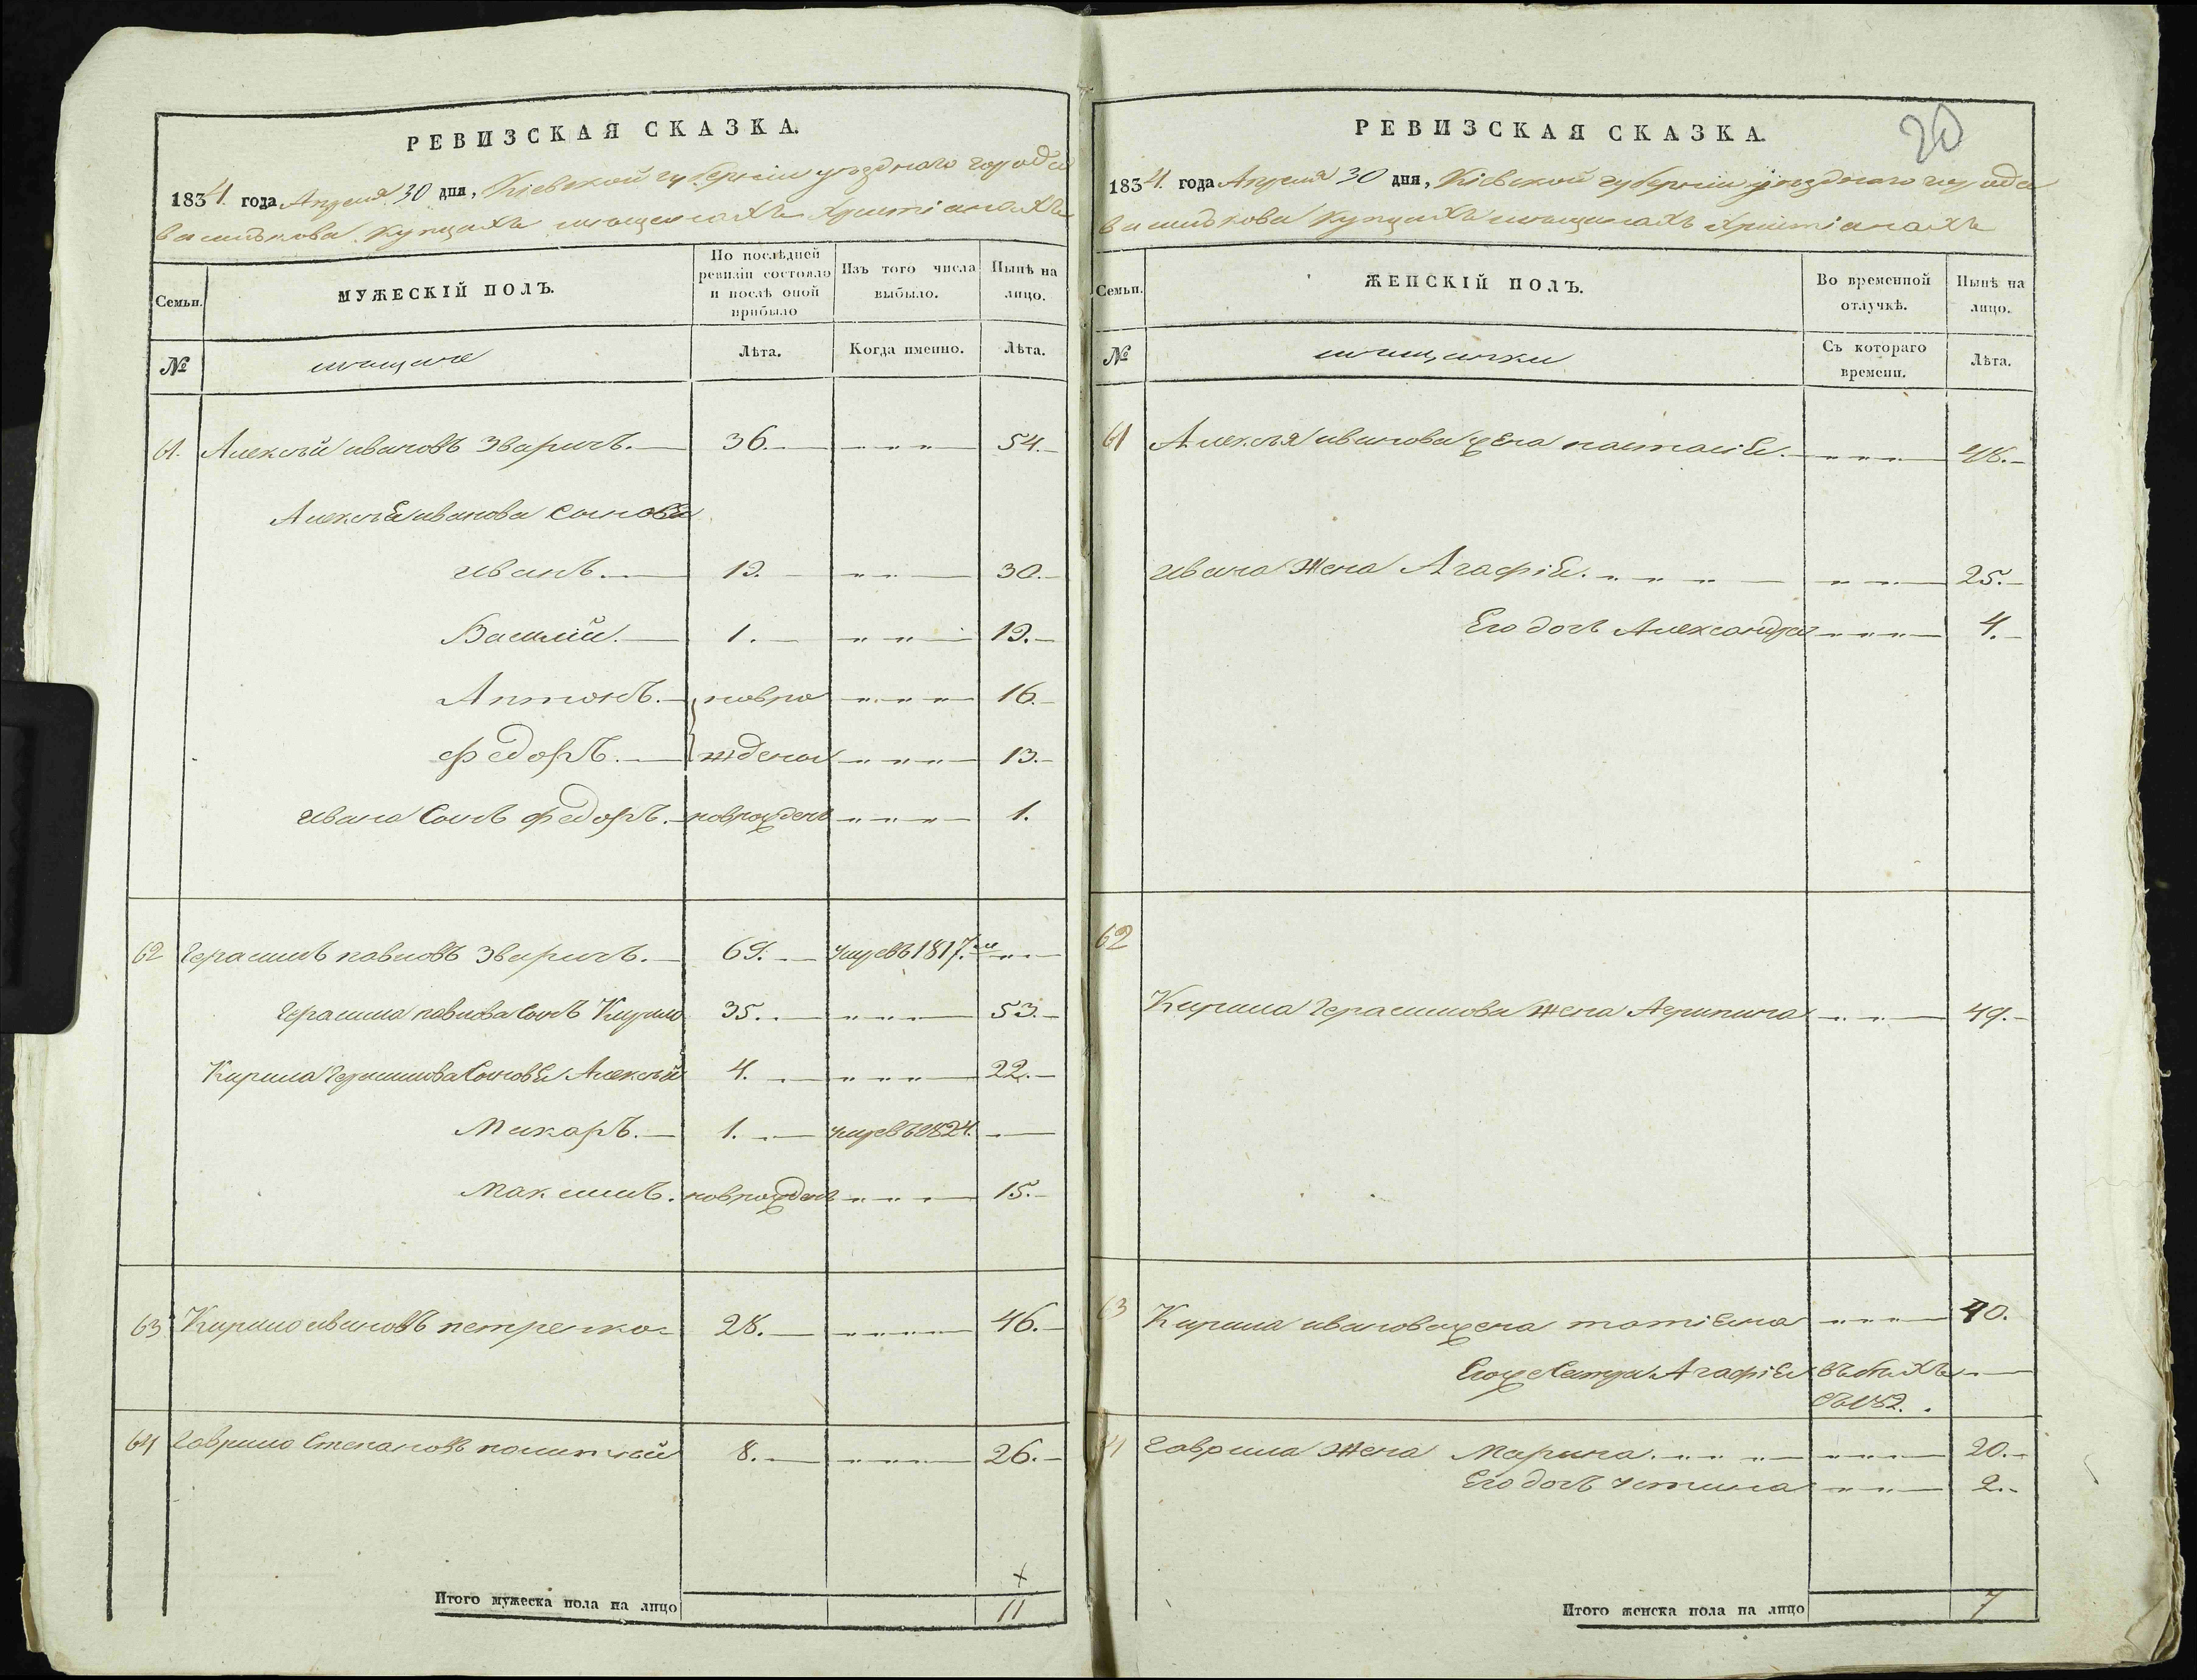 РЕВИЗСКАЯ СКАЗКА.
1834. года Апреля 30 дня, Кіевской губерніи уѣзднаго города
василькова купцахъ мещанахъ христіанахъ
Семьи.
МУЖЕСКІЙ ПОЛЪ.
По послѣдней ревизіи состояло и послѣ оной прибыло
Изъ того числа выбыло.
Нынѣ на лицо.
№
мещане
Лѣта.
Когда именно.
Лѣта.
61. Алексѣй ивановъ Зваричъ. 36. 54.
Алексѣя иванова Сыновья
иванъ. 12. 30.
Василій. 1. 19.
Антонъ. новро 16.
федоръ. ждены 13.
ивана Сынъ федоръ. новрожденъ 1.
62 Герасимъ павловъ Зваричъ. 69. умревъ 1817.
Герасима павлова Сынъ Кирило 35. 53.
Кирила Герасимова Сыновья Алексѣй 4. 22.
Макаръ. 1. умревъ 1824.
Максимъ. новрожденъ 15.
63 Кирило ивановъ петренко 28. 46.
64 Гаврило Степановъ 8. 26.
Итого мужеска пола на лицо 11
РЕВИЗСКАЯ СКАЗКА.
20
1834. года Апреля 30 дня, Кіевской губерніи уѣзднаго города
василькова купцахъ мещанахъ христіанахъ
Семьи.
ЖЕНСКІЙ ПОЛЪ.
Во временной отлучкѣ.
Нынѣ на лицо.
№
мещанки
Съ котораго времени.
Лѣта.
61 Алексѣя иванова жена настасія. 48.
ивана жена Агафія. 25.
Его дочь Александра 4.
62
Кирила Герасимова жена Агрипина 49.
63 Кирила иванова жена 40.
Егоже Сестра Агафія въ бѣгахъ
64 Гаврила жена Марина. 20.
Его дочь устина 2.
Итого женска пола на лицо 7